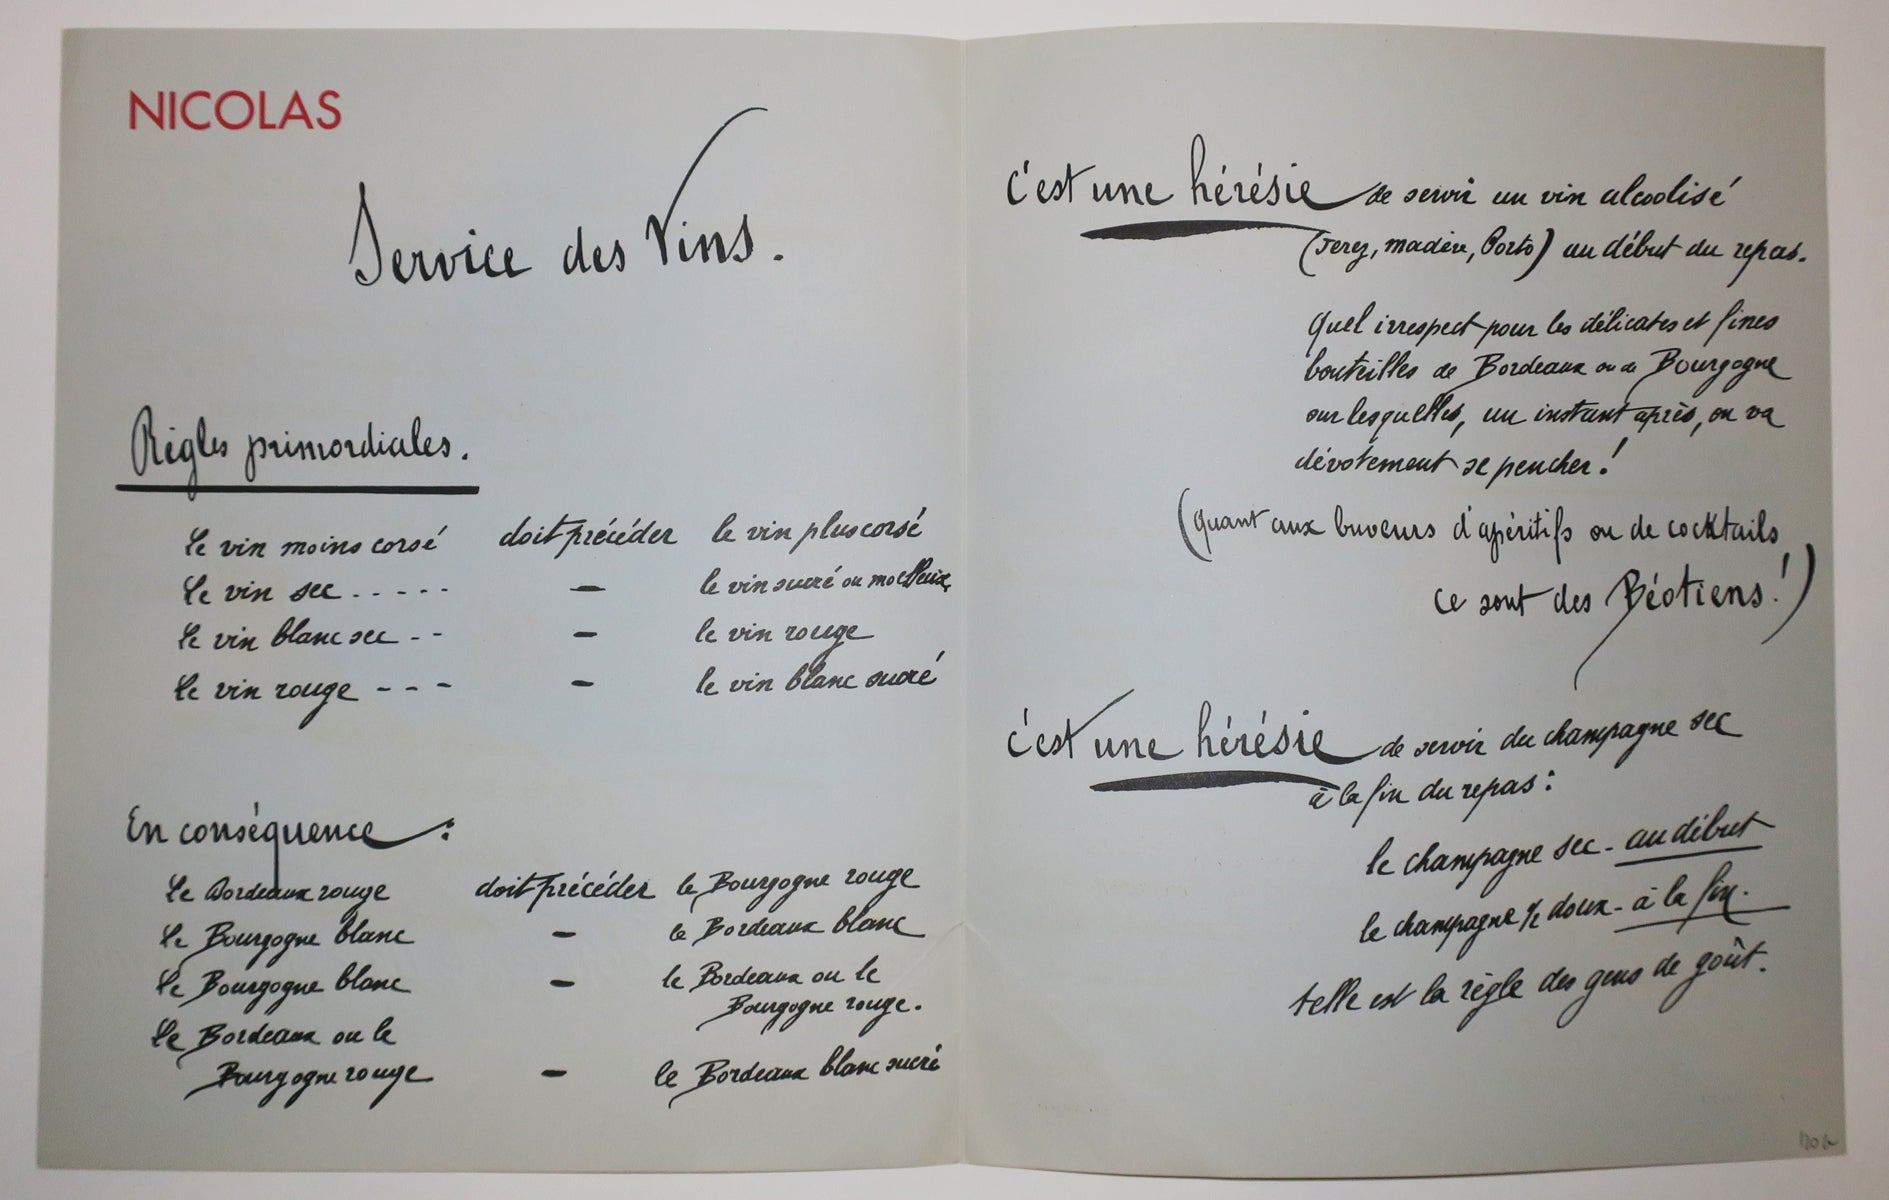 NICOLAS
Service des Vins.
Règles primordiales.
le vin moins corsé doit précéder le vin plus corsé
le vin sec ..... — le vin sucré ou moelleux
le vin blanc sec -- — le vin rouge
le vin rouge --- — le vin blanc sucré
En conséquence :
le Bordeaux rouge doit précéder le Bourgogne rouge
le Bourgogne blanc — le Bordeaux blanc
le Bourgogne blanc — le Bordeaux ou le
Bourgogne rouge.
le Bordeaux ou le
Bourgogne rouge — le Bordeaux blanc sucré
c'est une hérésie de servir un vin alcoolisé
(Jerez, madère, Porto) au début du repas.
Quel irrespect pour les délicates et fines
bouteilles de Bordeaux ou de Bourgogne
sur lesquelles, un instant après, on va
dévotement se pencher !
(quant aux buveurs d'apéritifs ou de cocktails
ce sont des Béotiens !)
c'est une hérésie de servir du champagne sec
à la fin du repas :
le champagne sec - au début
le champagne ½ doux - à la fin.
telle est la règle des gens de goût.